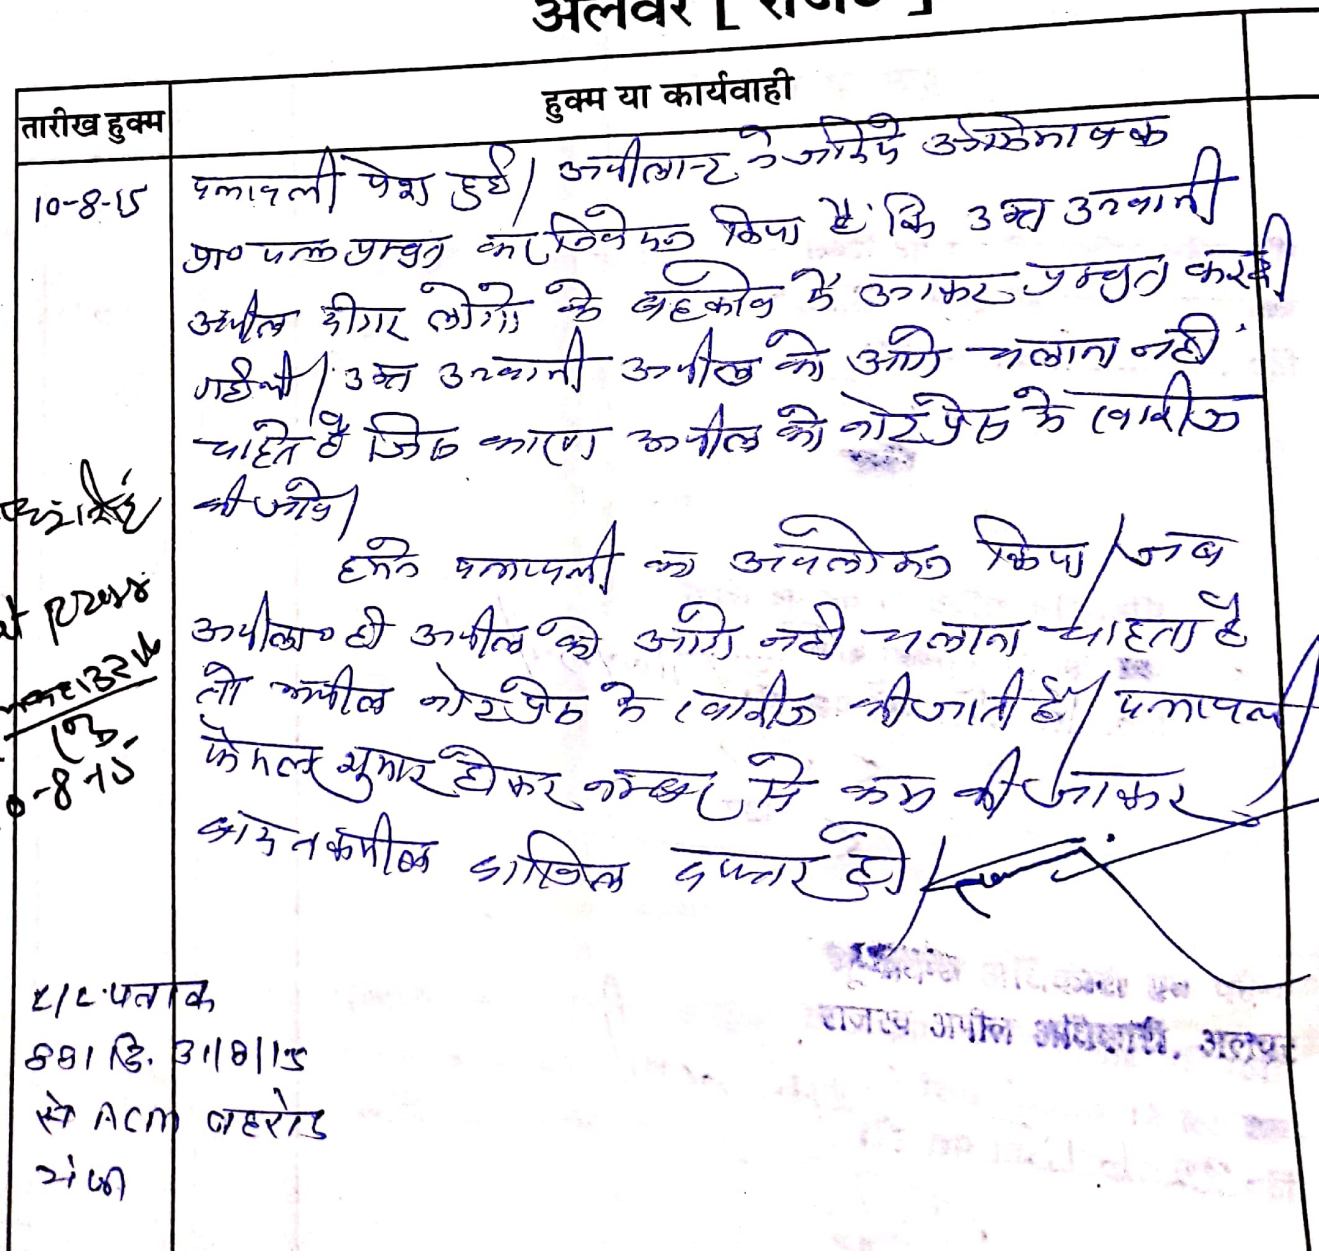 अलवर [ राज० ]
तारीख हुक्म
हुक्म या कार्यवाही
10-8-15
पत्रावली पेश हुई। अपीलान्ट ने जरिये अभिभाषक
प्रा० पत्र प्रस्तुत कर निवेदन किया है कि उक्त उनवानी
अपील दीगर लोगो के बहकावे में आकर प्रस्तुत कर दी
गई थी। उक्त उनवानी अपील को आगे चलाना नहीं
चाहते है जिस कारण अपील को नोट प्रेस के खारीज
की जावे।
हमने पत्रावली का अवलोकन किया। जब
अपीला० ही अपील को आगे नही चलाना चाहता है
तो अपील नोट प्रेस के खारीज की जाती है। पत्रावली
फैसल शुमार होकर नम्बर से कम की जाकर
बाद तकमील दाखिल दफ्तर हो।
राजस्व अपील अधिकारी, अलवर
press
-8-15
पत्रांक
881 दि. 31/8/15
से ACM बहरोड